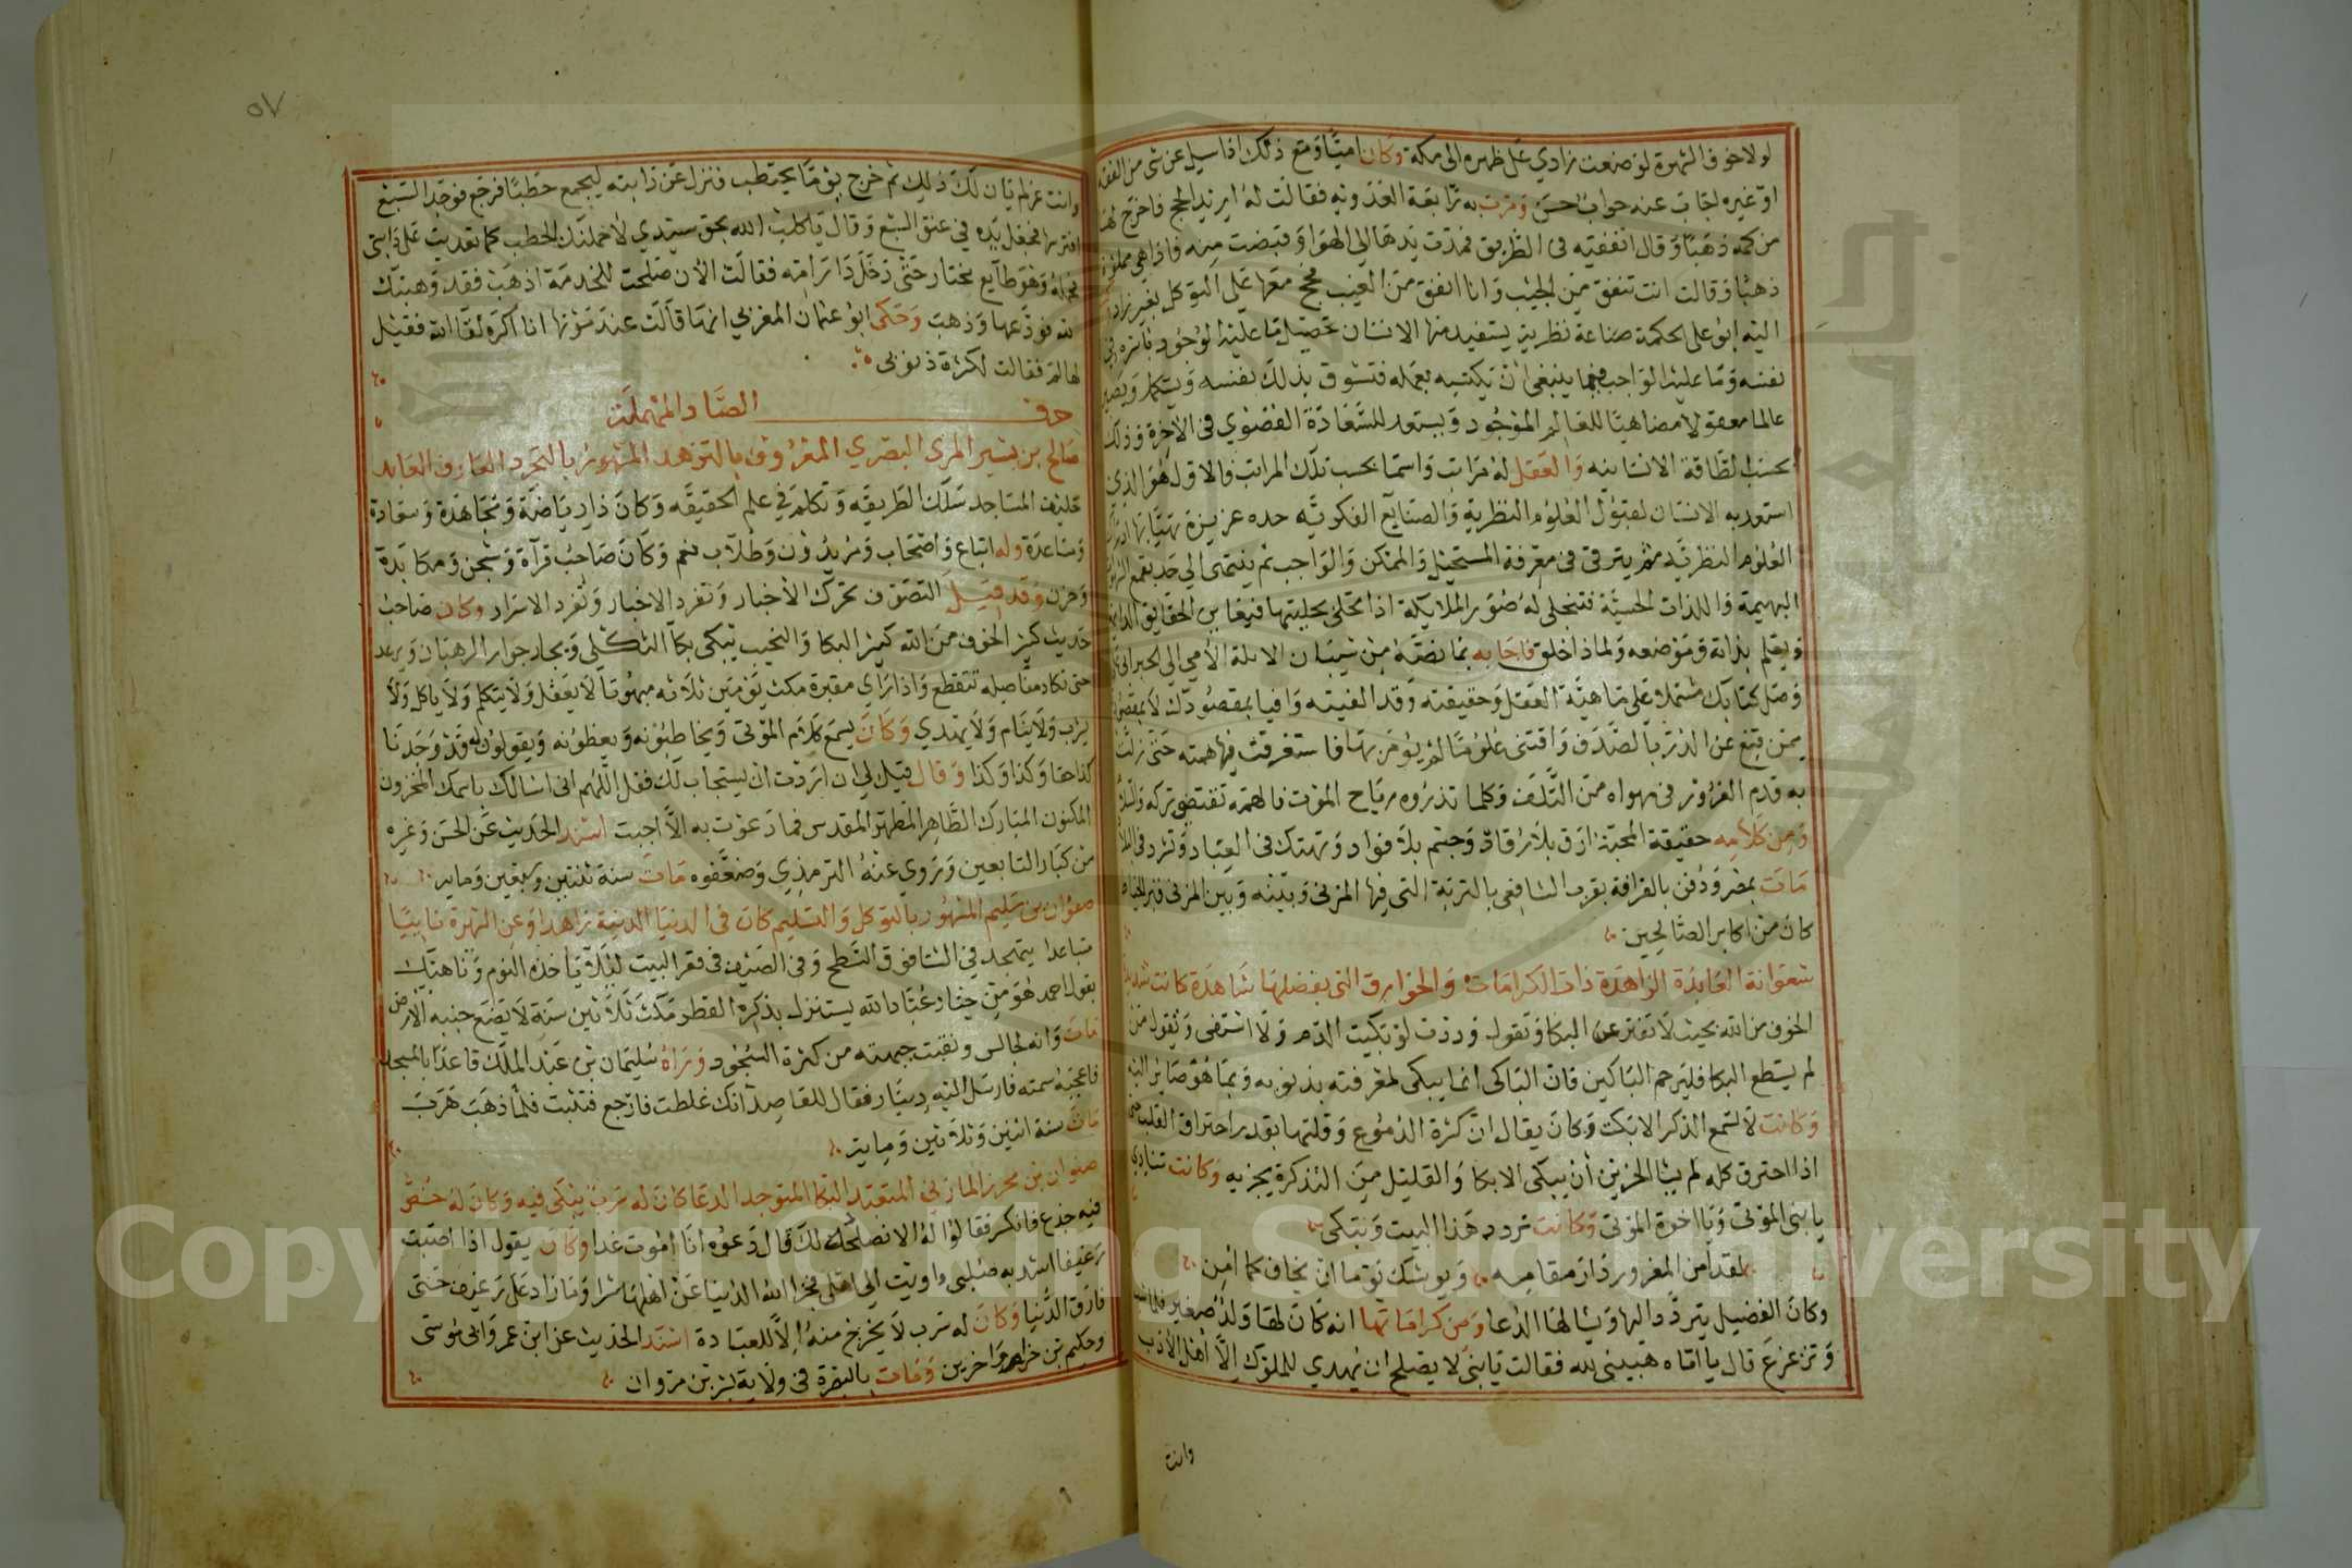 لولا خوف الشهرة لوضعت زادي على ظهره الى مكة وكان اميا ومع ذلك اذا سيل عن شى من الفقه
او غيره اجاب عنه جواب حسن ومرت به رابعة العدويه فقالت له اريد الحج فاخرج لها
من كمه ذهبا وقال انفقيه فى الطريق فمدت يدها الى الهوا وقبضت منه فاذا هى مملوة
ذهبا وقالت انت تنفق من الجيب وانا انفق من الغيب فحج معها على التوكل بغير زاد
اليه ابو على الحكمة صناعة نظرية يستفيد منها الانسان تحصيل ما عليه الوجود باسره فى
نفسه وما عليه الواجب مما ينبغى ان يكتسبه بعمله فتشوق بذلك نفسه ويستكمل ويصير
عالما معقولا مضاهيا للعالم الموجود ويستعد للسعادة القصوي فى الآخرة وذلك
بحسب الطاقة الانسانيه والعقل له مراتب واسما بحسب تلك المراتب والاول هو الذي
استعد به الانسان لقبول العلوم النظرية والصنايع الفكريه حده غريزة تهيابها ادراك
العلوم النظريه ثم يترقى فى معرفة المستحيل والممكن والواجب ثم ينتهى الى حد يقمع الشهوات
البهيمة واللذات الحسيّة فتتجلى له صور الملايكة اذا تحلى بحليتها فيعاين الحقايق الدايمة
ويعلم بذاته وموضعه ولماذا خلق فاجابه بما نصه من شيبان الابلة الأمي الى الحبر
وصل كتابك مشتملا على ماهيّة العقل وحقيقته وقد الفيته وافيا بمقصودك لا بمقصودي
ممن قنع عن الدر بالصدف واقتنى علوما لم يؤمر بها فاستغرقت فيها همته حتى زلت
به قدم الغرور فى مهواه من التلف وكلما تذروه رياح الموت فالهمة تقتضى تركه والسلام
ومن كلامه حقيقة المحبة ارق بلا رقاد وجسم بلا فواد وتهتك فى العباد وتشرد فى البلاد
مات بمصر ودفن بالقرافة بقرب الشافعى بالتربة التى فيها المزنى وبينه وبين المزنى قبر الخياط
كان من اكابر الصالحين
شعوانة العابدة الزاهدة ذات الكرامات والخوارق التى بفضلها شاهدة كانت شديدة
الخوف من الله بحيث لا تفتر عن البكا وتقول وددت لو بكيت الدم ولا اشتفى وتقول من
لم يستطع البكا فليرحم الباكين فان الباكى انما يبكى لمعرفته بذنوبه وبما هو صاير اليه
وكانت لا تسمع الذكر الا بكت وكان يقال ان كثرة الدموع وقلتها بقدر احتراق القلب حتى
اذا احترق كله لم يشا الحزين ان يبكى الا بكا والقليل من التذكرة يجزيه وكانت تنادي
يا بنى الموتى ويا اخوة الموتى وكانت تردد هذا البيت وتبكى
لقد امن المغرور دار مقامه ويوشك يوما ان يخاف كما امن
وكان الفضيل يتردد اليها ويسالها الدعا ومن كراماتها انه كان لها ولد صغير فلما نشا
وترعرع قال يا اماه هبينى لله فقالت يا بنى لا يصلح ان يهدي للملوك الا اهل الأدب
وانت
٥٧
وانت غر لم يان لك ذلك ثم خرج يوما يحتطب فنزل عن دابته ليجمع حطبا فرجع فوجد السبع
افترسها فجعل يده فى عنق السبع وقال يا كلب الله بحق سيدي لاحملنك الحطب كما تعديت على دابتى
فحمله وهو طايع يختار حتى دخل دار امه فقالت الآن صلحت للخدمة اذهب فقد وهبتك
لله فودعها وذهب وحكى ابو عثمان المغربي انها قالت عند موتها انا اكره لقا الله فقيل
لها لم فقالت لكثرة ذنوبى
حرف الصاد المهملة
صالح بن بشير المرى البصري المعروف بالتزهد المشهور بالتجرد العارف العابد
حليف المساجد سلك الطريقه وتكلم في علم الحقيقه وكان ذا رياضة ومجاهدة وسعادة
ومساعدة وله اتباع واصحاب ومريدون وطلاب نعم وكان صاحب قرآة وشجن ومكابدة
وحزن وقد قيل التصوف تحرك الأخبار وتفرد الاخيار وتفرد الاسرار وكان صاحب
حديث كثير الخوف من الله كثير البكا والنحيب يبكى بكآ الثكلى ويجار جوار الرهبان ويرعد
حتى تكاد مفاصله تتقطع واذا راي مقبرة مكث يومين ثلاثه مبهوتا لا يعقل ولا يتكلم ولا ياكل ولا
يشرب ولا ينام ولا يهتدي وكان يسمع كلام الموتى ويخاطبونه ويعظونه ويقولون له قد وجدنا
كذا حقا وكذا وكذا وقال قيل لى ان اردت ان يستجاب لك فقل اللهم انى اسالك باسمك المخزون
المكنون المبارك الطاهر المطهر المقدس فما دعوت به الا اجبت اسند الحديث عن الحسن وغيره
من كبار التابعين وروي عنه الترمذي وضعفوه مات سنة ثنتين وسبعين وماية
صفوان بن سليم المشهور بالتوكل والتسليم كان فى الدنيا الدنية زاهدا وعن الشهرة نائيا
متباعدا يتهجد في الشتا فوق السطح وفى الصيف فى قعر البيت ليلا ياخذه النوم وناهيك
بقول احمد هو من خيار عباد الله يستنزل بذكره القطر مكث ثلاثين سنة لا يضع جنبه الارض
مات وانه لجالس ونقبت جبهته من كثرة السجود وراه سليمان بن عبد الملك قاعدا بالمسجد
فاعجبه سمته فارسل اليه دينار فقال للقاصد انك غلطت فارجع فتثبت فلما ذهب هرب
مات سنة اثنين وثلاثين وماية
صفوان بن محرز المازنى المتعبد البكا المتوجد الدعا كان له سرب يبكى فيه وكان له خص
فيه جذع فانكسر فقالوا له الا نصلحه لك قال دعوه انا اموت غدا وكان يقول اذا اصبت
رغيفا اشد به صلبى واويت الى اهلى فجزا الله الدنيا عن اهلها شرا وما زاد على رغيف حتى
فارق الدنيا وكان له سرب لا يخرج منه الا للعبادة اسند الحديث عن ابن عمر وابى موسى
وحكيم بن حزام واخرين ومات بالبصرة فى ولاية بشر بن مروان
Copyright © King Saud University